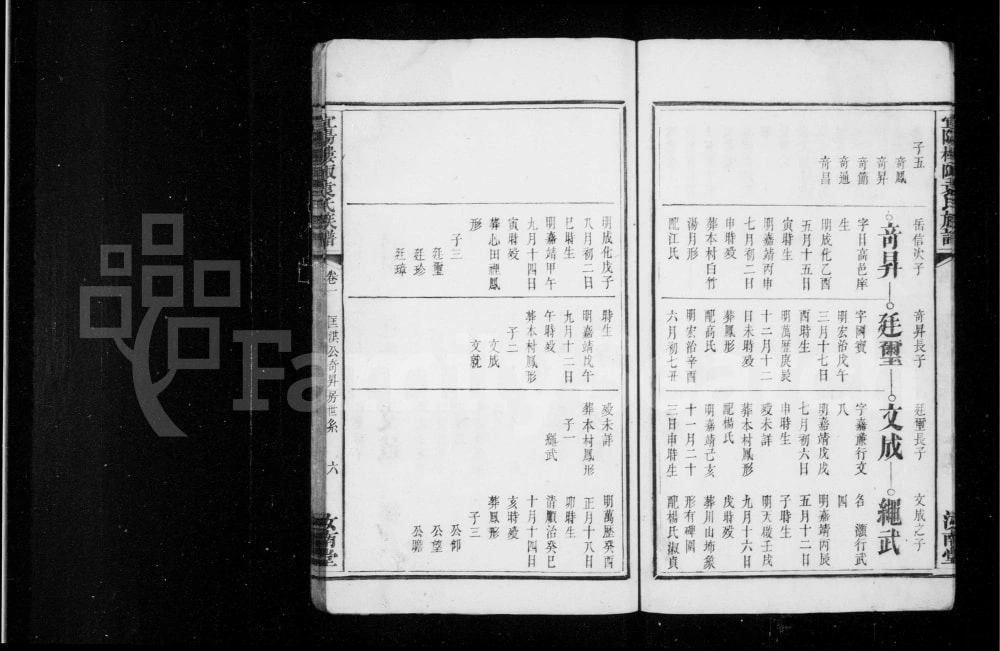 子五
奇鳳
奇昇
奇蘭
奇通
奇昌
岳信次子
奇昇
字日高邑庠
生
明成化乙酉
五月十五日
寅時生
明嘉靖丙申
七月初二日
申時歿
葬本村白竹
湯月形
龍江氏
明成化戊子
八月初二日
巳時生
明嘉靖甲午
九月十四日
寅時歿
葬心田裡鳳
形
子三
廷璽
廷珍
廷璋
奇昇長子
廷璽
字國賓
明宏治戊午
三月十七日
酉時生
明萬歷庚辰
十二月十二
日未時歿
葬鳳形
龍高氏
明宏治辛酉
六月初七丑
時生
明嘉靖戊午
九月十二日
午時歿
葬本村鳳形
子二
文成
文就
廷璽長子
文成
字嘉廉行文
八
明嘉靖戊戌
七月初六日
申時生
歿未詳
葬本村鳳形
龍楊氏
明嘉靖己亥
十一月二十
三日申時生
歿未詳
葬本村鳳形
子一
繩武
文成之子
繩武
名 滙行武
四
明嘉靖丙辰
五月十二日
子時生
明天啟壬戌
九月十六日
戌時歿
葬川山埗象
形有碑圖
龍楊氏淑貞
明萬歷癸酉
正月十八日
卯時生
清順治癸巳
十月十四日
亥時歿
葬鳳形
子三
公卿
公望
公贍
袁氏族譜
卷一
匡淇公奇昇房世系
六
汝南堂